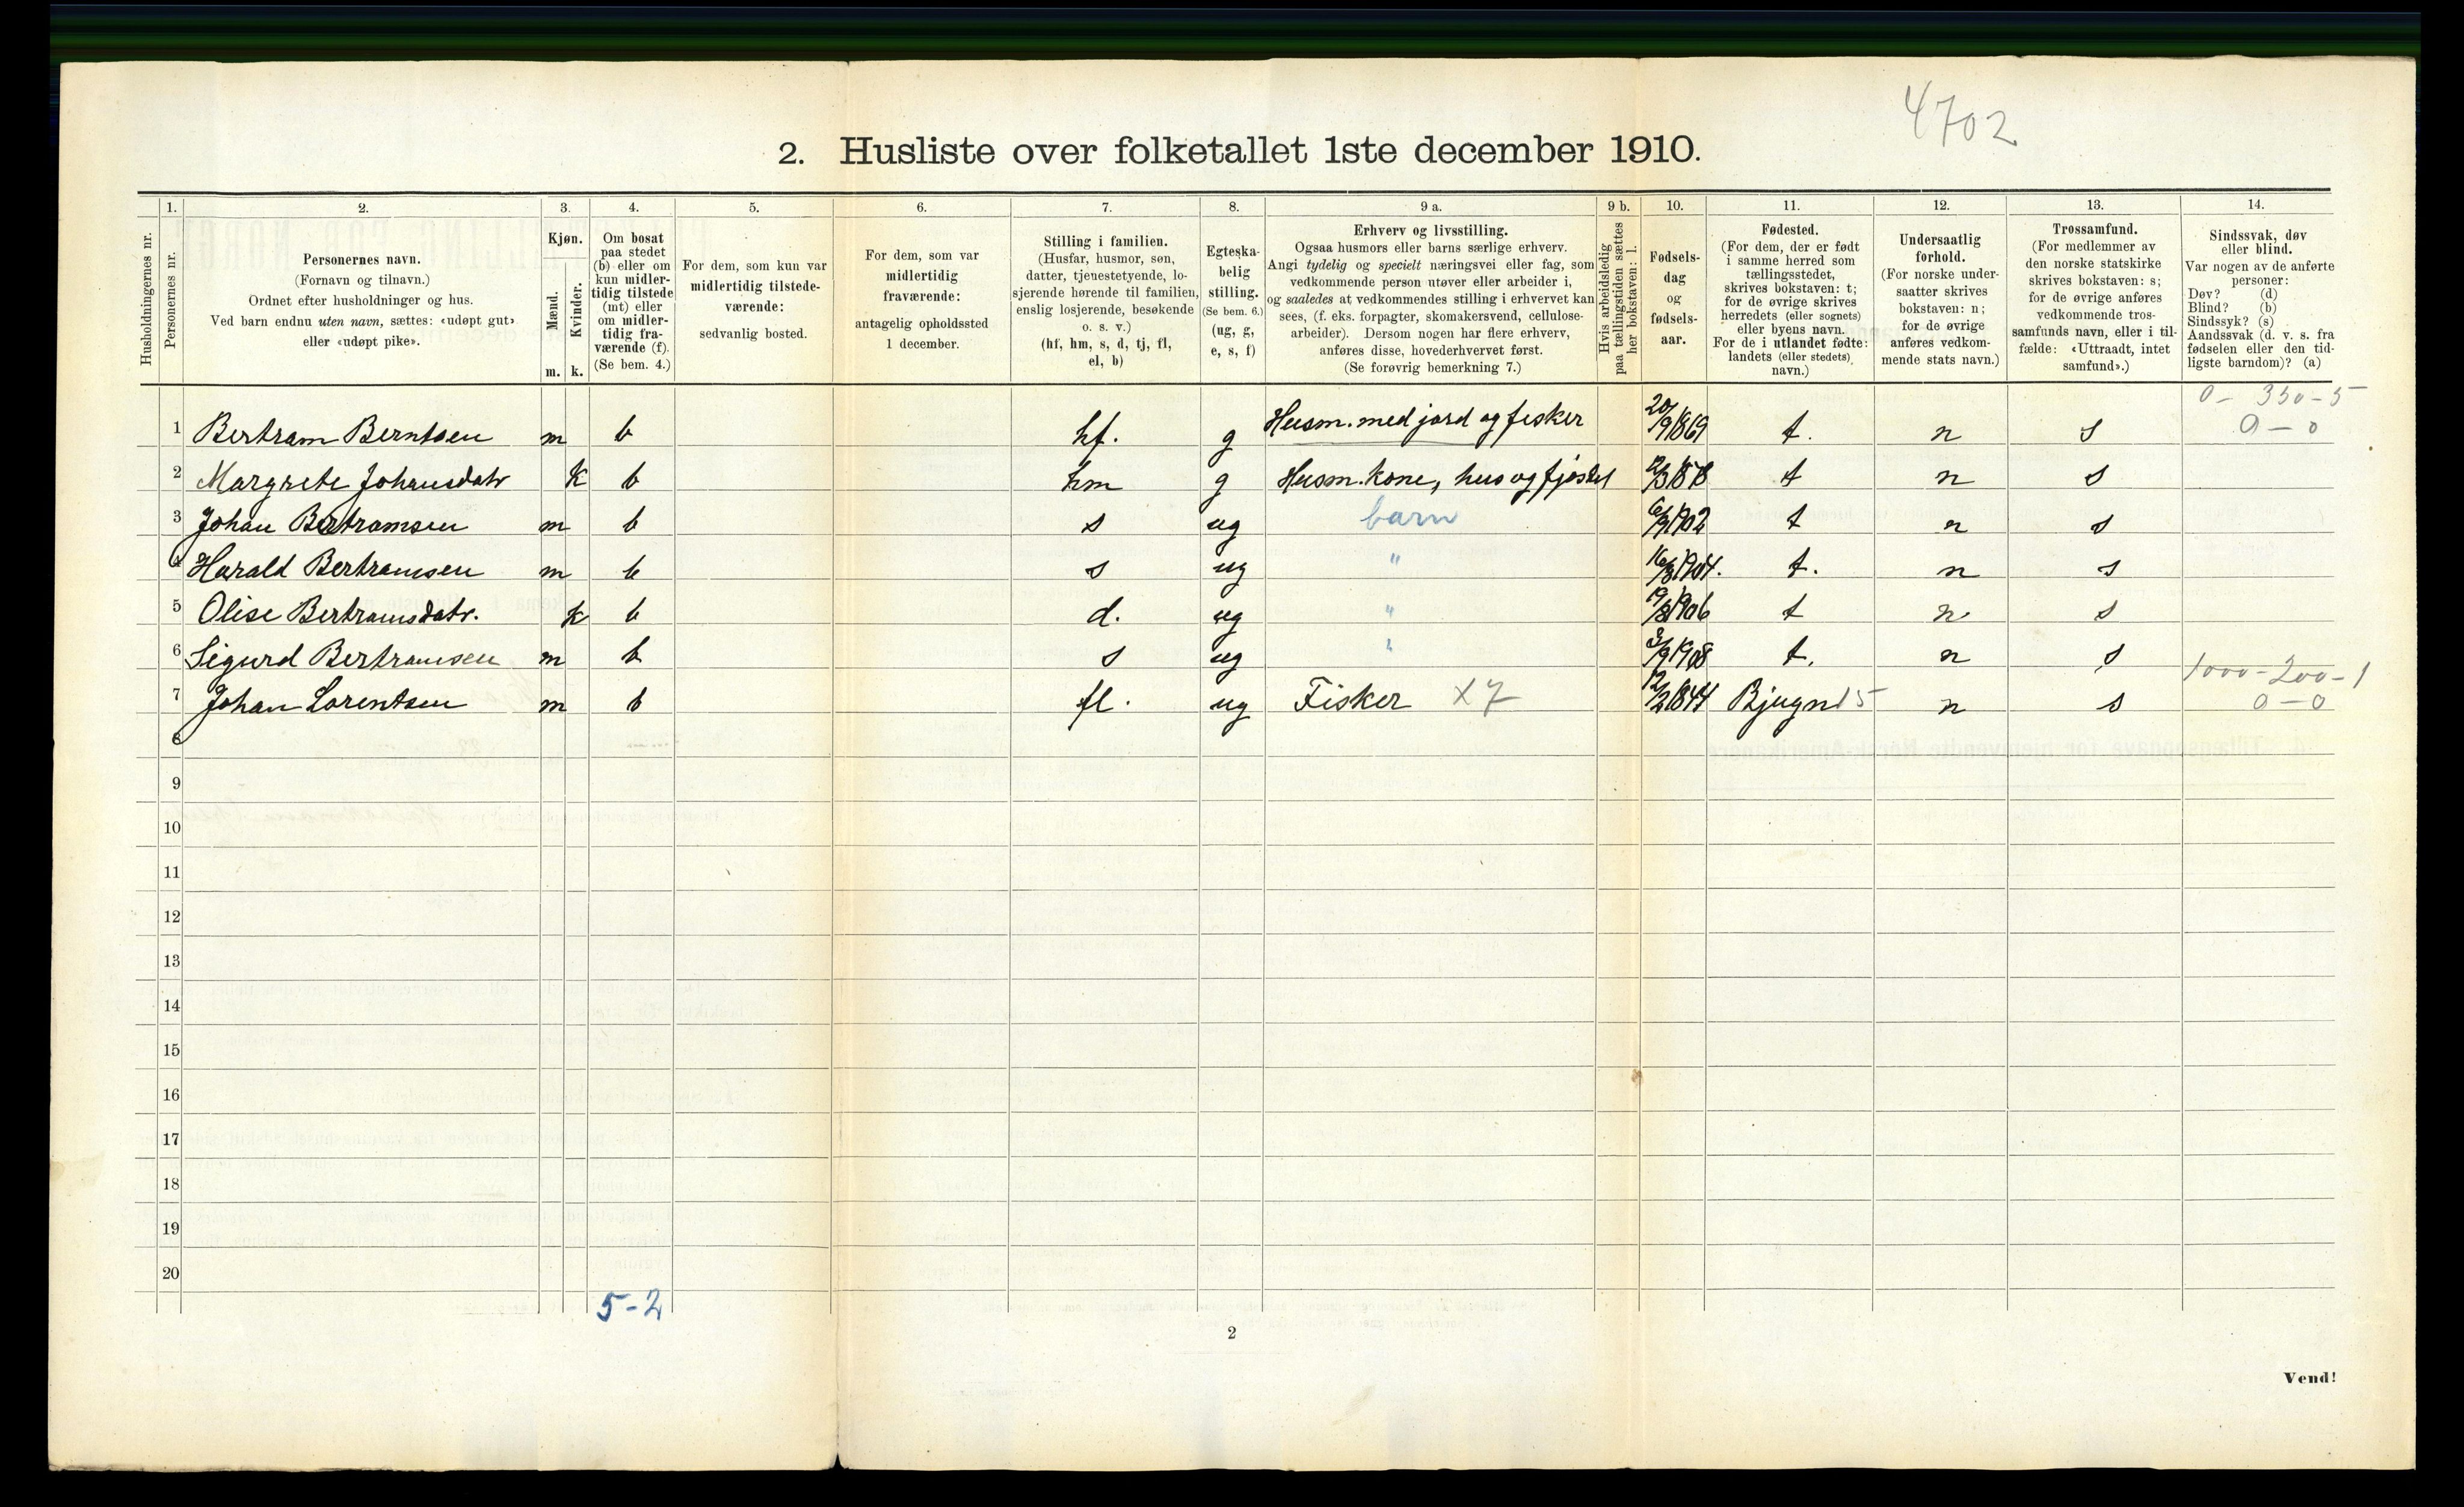 4702
2. Husliste over folketallet 1ste december 1910.
Husholdningernes nr.
1. Personernes nr.
2. Personernes navn.
(Fornavn og tilnavn.)
Ordnet efter husholdninger og hus.
Ved barn endnu uten navn, sættes: «udøpt gut»
eller «udøpt pike».
3. Kjøn.
Mænd. m.
Kvinder. k.
4. Om bosat
paa stedet
(b) eller om
kun midler-
tidig tilstede
(mt) eller
om midler-
tidig fra-
værende (f).
(Se bem. 4.)
5. For dem, som kun var
midlertidig tilstede-
værende:
sedvanlig bosted.
6. For dem, som var
midlertidig
fraværende:
antagelig opholdssted
1 december.
7. Stilling i familien.
(Husfar, husmor, søn,
datter, tjenestetyende, lo-
sjerende hørende til familien,
enslig losjerende, besøkende
o. s. v.)
(hf, hm, s, d, tj, fl,
el, b)
8. Egteska-
belig
stilling.
(Se bem. 6.)
(ug, g,
e, s, f)
9 a. Erhverv og livsstilling.
Ogsaa husmors eller barns særlige erhverv.
Angi tydelig og specielt næringsvei eller fag, som
vedkommende person utøver eller arbeider i,
og saaledes at vedkommendes stilling i erhvervet kan
sees, (f. eks. forpagter, skomakersvend, cellulose-
arbeider). Dersom nogen har flere erhverv,
anføres disse, hovederhvervet først.
(Se forøvrig bemerkning 7.)
9 b. Hvis arbeidsledig
paa tællingstiden sættes
her bokstaven: l.
10. Fødsels-
dag
og
fødsels-
aar.
11. Fødested.
(For dem, der er født
i samme herred som
tællingsstedet,
skrives bokstaven: t;
for de øvrige skrives
herredets (eller sognets)
eller byens navn.
For de i utlandet fødte:
landets (eller stedets)
navn.)
12. Undersaatlig
forhold.
(For norske under-
saatter skrives
bokstaven: n;
for de øvrige
anføres vedkom-
mende stats navn.)
13. Trossamfund.
(For medlemmer av
den norske statskirke
skrives bokstaven: s;
for de øvrige anføres
vedkommende tros-
samfunds navn, eller i til-
fælde: «Uttraadt, intet
samfund».)
14. Sindssvak, døv
eller blind.
Var nogen av de anførte
personer:
Døv? (d)
Blind? (b)
Sindssyk? (s)
Aandssvak (d. v. s. fra
fødselen eller den tid-
ligste barndom)? (a)
0 - 350 - 5
1 Bertram Berntsen m b hf. g Husm. med jord og fisker 20/9 1869 t. n s 0 - 0
2 Margrete Johansdatr k b hm g Husm. kone, hus og fjøsstel t n s
3 Johan Bertramsen m b s ug barn 6/9 1902 t n s
4 Harald Bertramsen m b s ug " 16/3 1904. t. n s
5 Olise Bertramsdatr. k b d. ug " 19/8 1906 t n s
6 Sigurd Bertramsen m b s ug " 3/9 1908 t. n s
1000 - 200 - 1
7 Johan Lorentsen m b fl. ug Fisker X7 12/2 1844 Bjugn 15 n s 0 - 0
8
9
10
11
12
13
14
15
16
17
18
19
20
5 - 2
2
Vend!